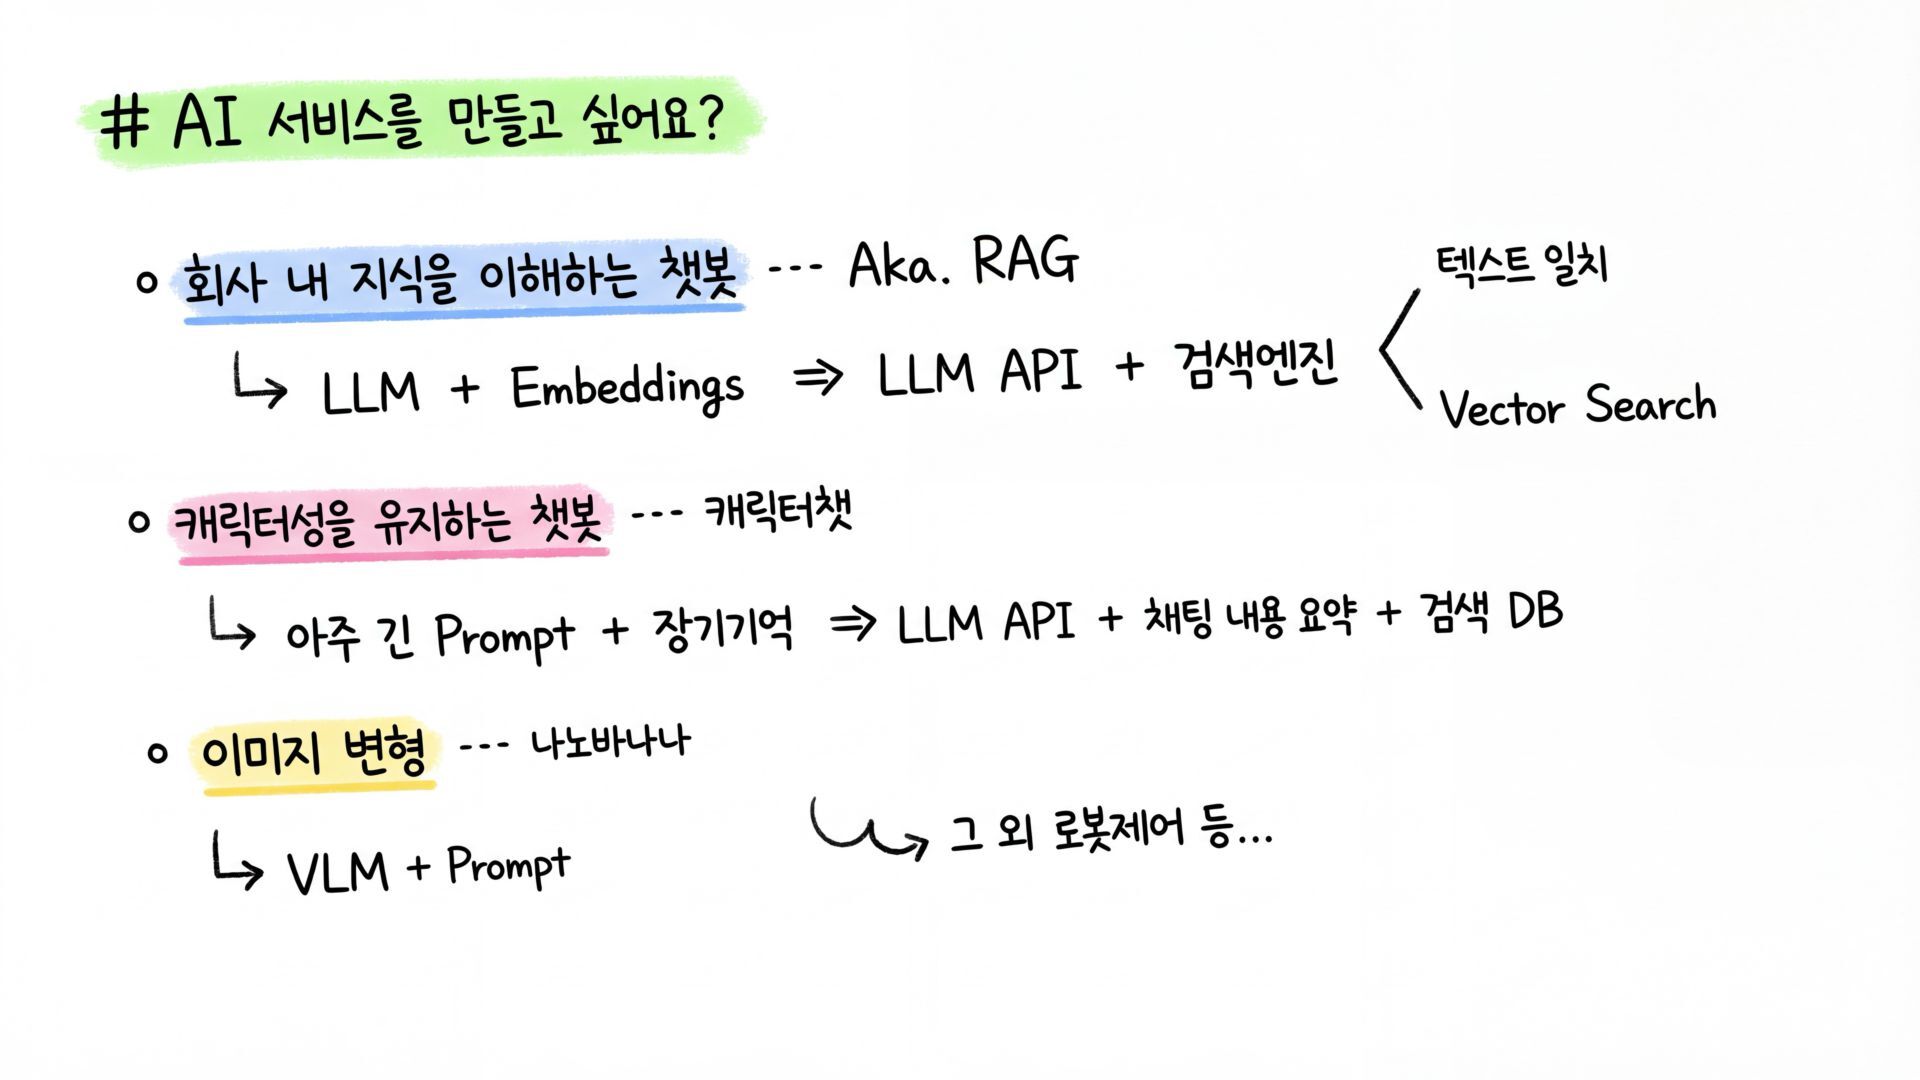 # AI 서비스를 만들고 싶어요?
○ 회사 내 지식을 이해하는 챗봇 --- Aka. RAG
↳ LLM + Embeddings ⇒ LLM API + 검색엔진 < 텍스트 일치
Vector Search
○ 캐릭터성을 유지하는 챗봇 --- 캐릭터챗
↳ 아주 긴 Prompt + 장기기억 ⇒ LLM API + 채팅 내용 요약 + 검색 DB
○ 이미지 변형 --- 나노바나나
↳ VLM + Prompt
그 외 로봇제어 등...